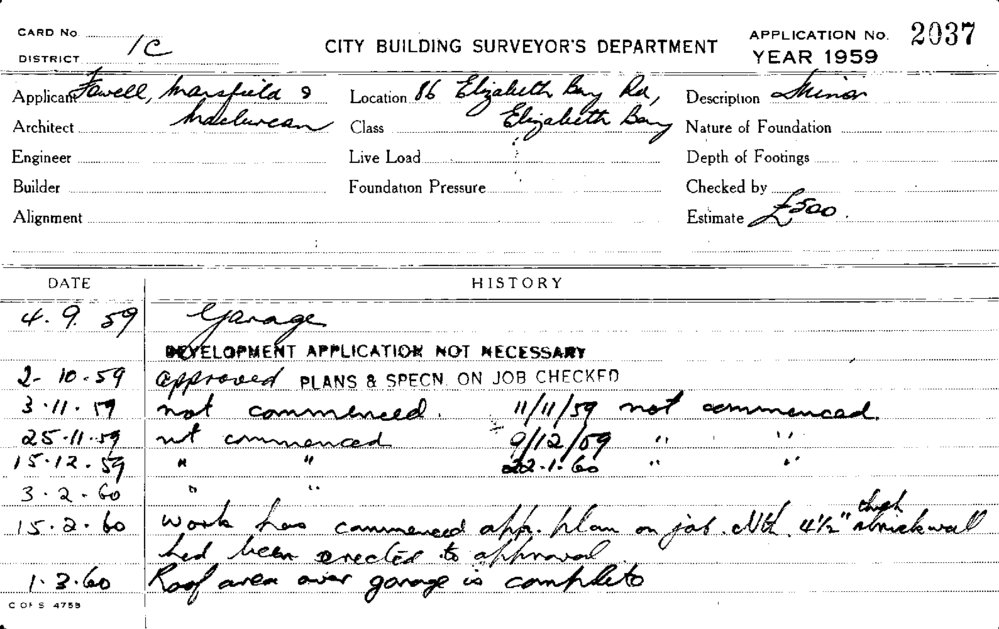 CARD No.
DISTRICT 1C
CITY BUILDING SURVEYOR'S DEPARTMENT
APPLICATION No. 2037
YEAR 1959
Applicant Fowell, Mansfield & Maclurcan
Location 86 Elizabeth Bay Rd, Elizabeth Bay
Description Minor
Architect
Class
Nature of Foundation
Engineer
Live Load
Depth of Footings
Builder
Foundation Pressure
Checked by
Alignment
Estimate £500.
DATE HISTORY
4. 9. 59 Garage
DEVELOPMENT APPLICATION NOT NECESSARY
2- 10 - 59 approved PLANS & SPECN. ON JOB CHECKED
3 - 11 - 59 not commenced. 11/11/59 not commenced.
25 - 11 - 59 not commenced 9/12/59 " "
15 - 12 - 59 " " 22 - 1 - 60 " "
3 - 2 - 60 " "
15 - 2 - 60 Work has commenced app. plan on job. Nth. 4½" brickwall
had been erected to approval
1 - 3 - 60 Roof area over garage is complete
C OF S 4759